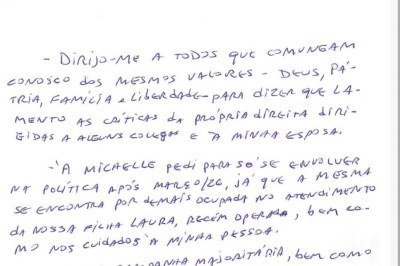 - DIRIJO-ME A TODOS QUE COMUNGAM
CONOSCO DOS MESMOS VALORES - DEUS, PÁ-
TRIA, FAMÍLIA e LIBERDADE - PARA DIZER QUE LA-
MENTO AS CRÍTICAS DA PRÓPRIA DIREITA DIRI-
GIDAS A ALGUNS COLEGAS E À MINHA ESPOSA.
- À MICHELLE PEDI PARA SÓ SE ENVOLVER
NA POLÍTICA APÓS MARÇO/26, JÁ QUE A MESMA
SE ENCONTRA POR DEMAIS OCUPADA NO ATENDIMENTO
DA NOSSA FILHA LAURA, RECÉM OPERADA, BEM CO-
MO NOS CUIDADOS À MINHA PESSOA.
MAJORITÁRIA, BEM COMO